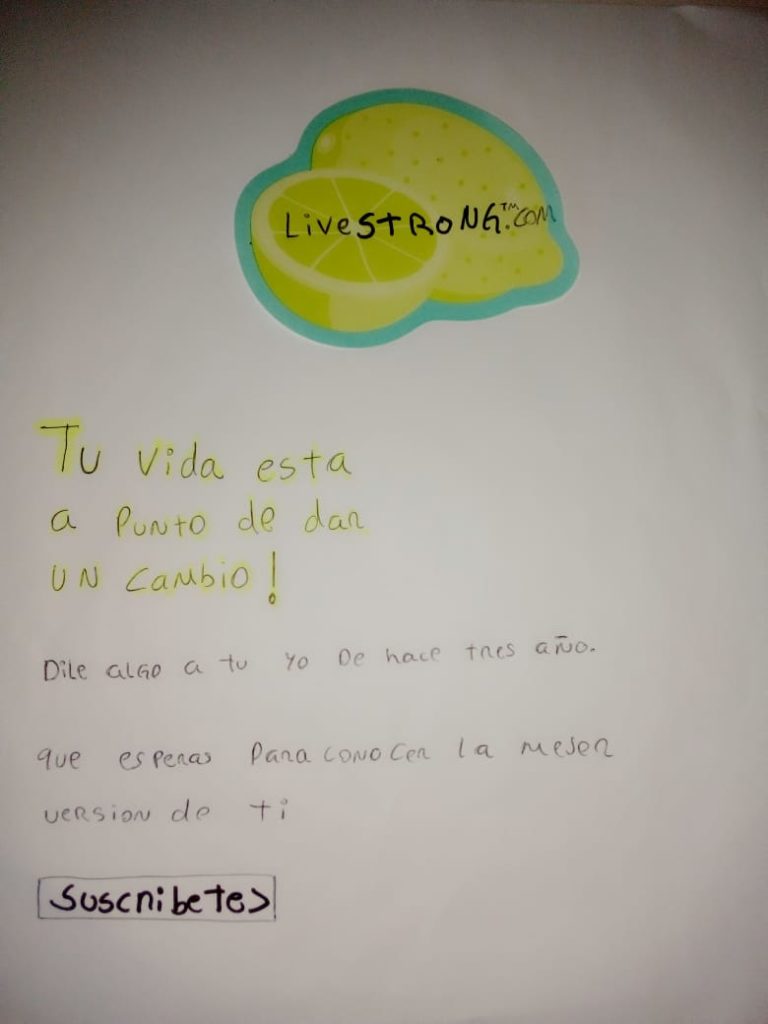 LiveSTRONG.™COM
Tu vida esta
a punto de dar
un cambio!
Dile algo a tu yo De hace tres año.
que esperas para conocer la meser
version de ti
Suscribete>